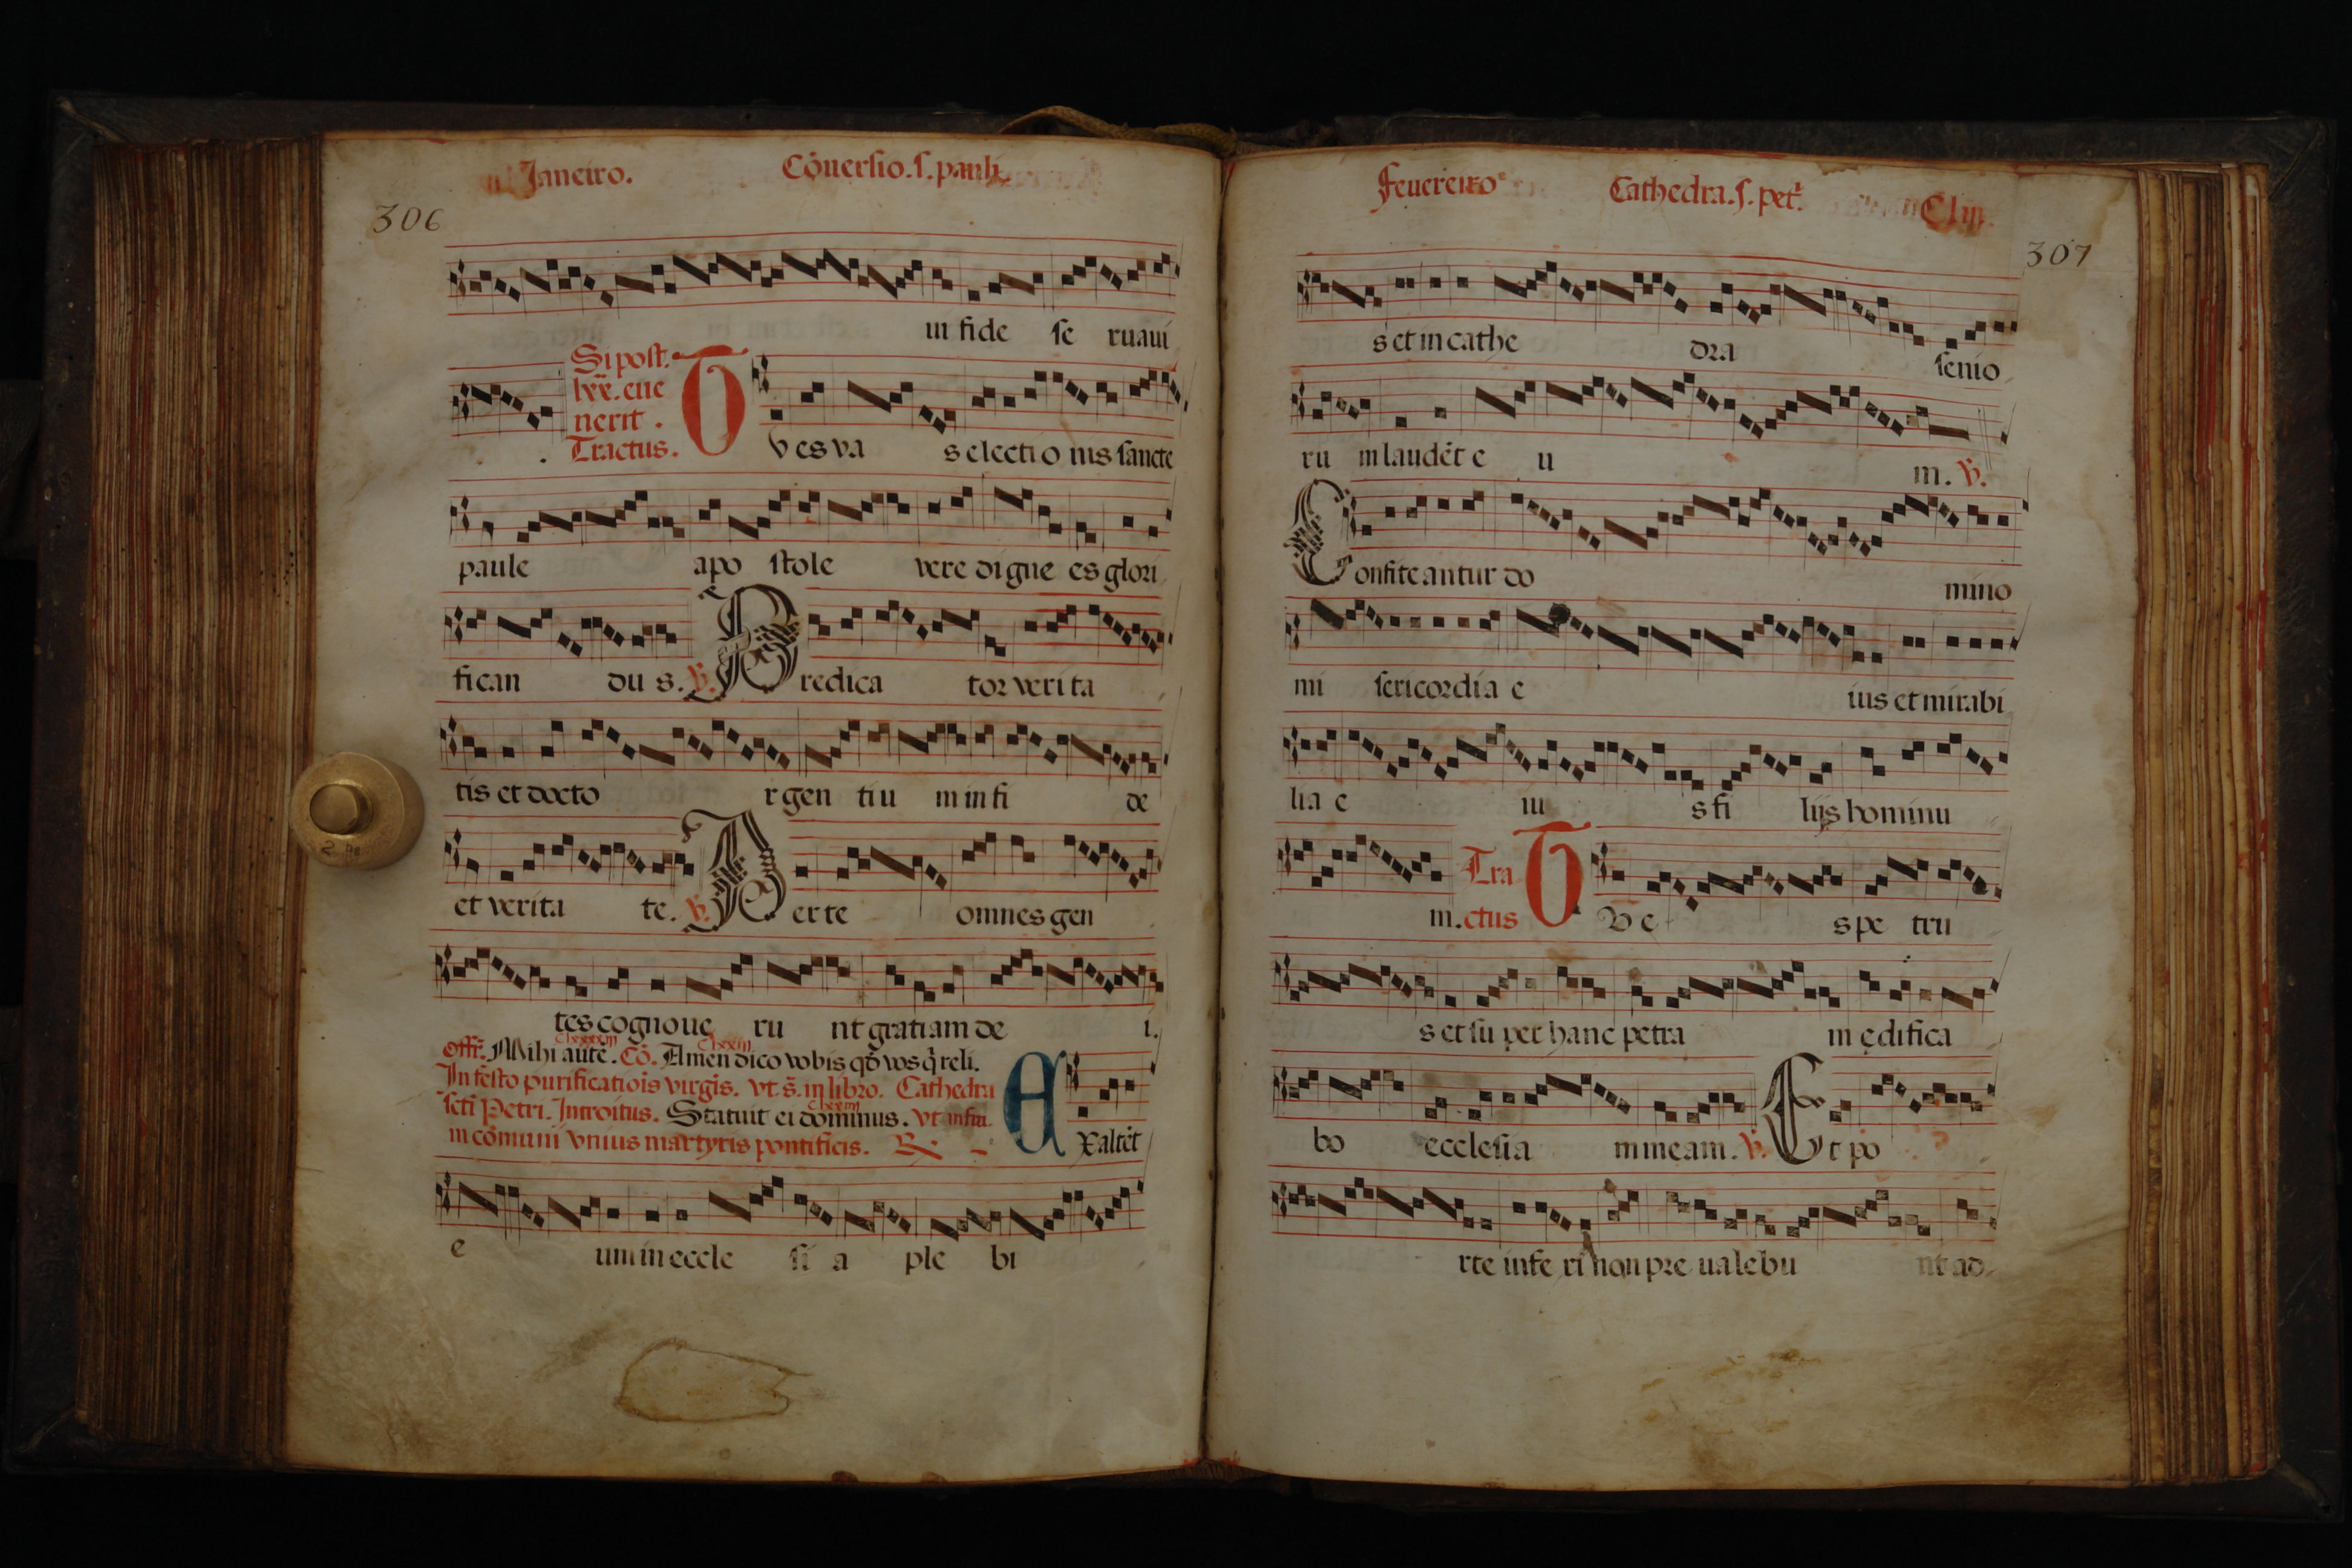 Janeiro. Cōuersio. s. pauli.
306
in fide se ruaui
Si post
lxx. eue
nerit .
Tractus. T v es va s electi o nis sancte
paule apo stole vere digne es glori
fican du s. V. Predica tor verita
tis et docto r gen ti u m in fi de
et verita te. V. Per te omnes gen
tes cognoue ru nt gratiam de i.
Offr. Mihi autē. Cō. Amen dico vobis qđ vos q̄ reli.
In festo purificatiōis virgīs. vt. s̄. in libro. Cathedra
scti Petri. Introitus. Statuit ei dominus. vt infra.
in cōmuni vnius martyris pontificis. R E xaltēt
e um in eccle si a ple bi
Feuereiro Cathedra. s. pet̄.
307
s et in cathe dra senio
ru m laudēt e u m. V.
Confiteantur do mino
mi sericordia e ius et mirabi
lia e iu s fi lijs hominu
m. Tractus T v e s pe tru
s et su per hanc petra m edifica
bo ecclesia m meam. V. Et po
rte infe ri non pre ualebu nt ad